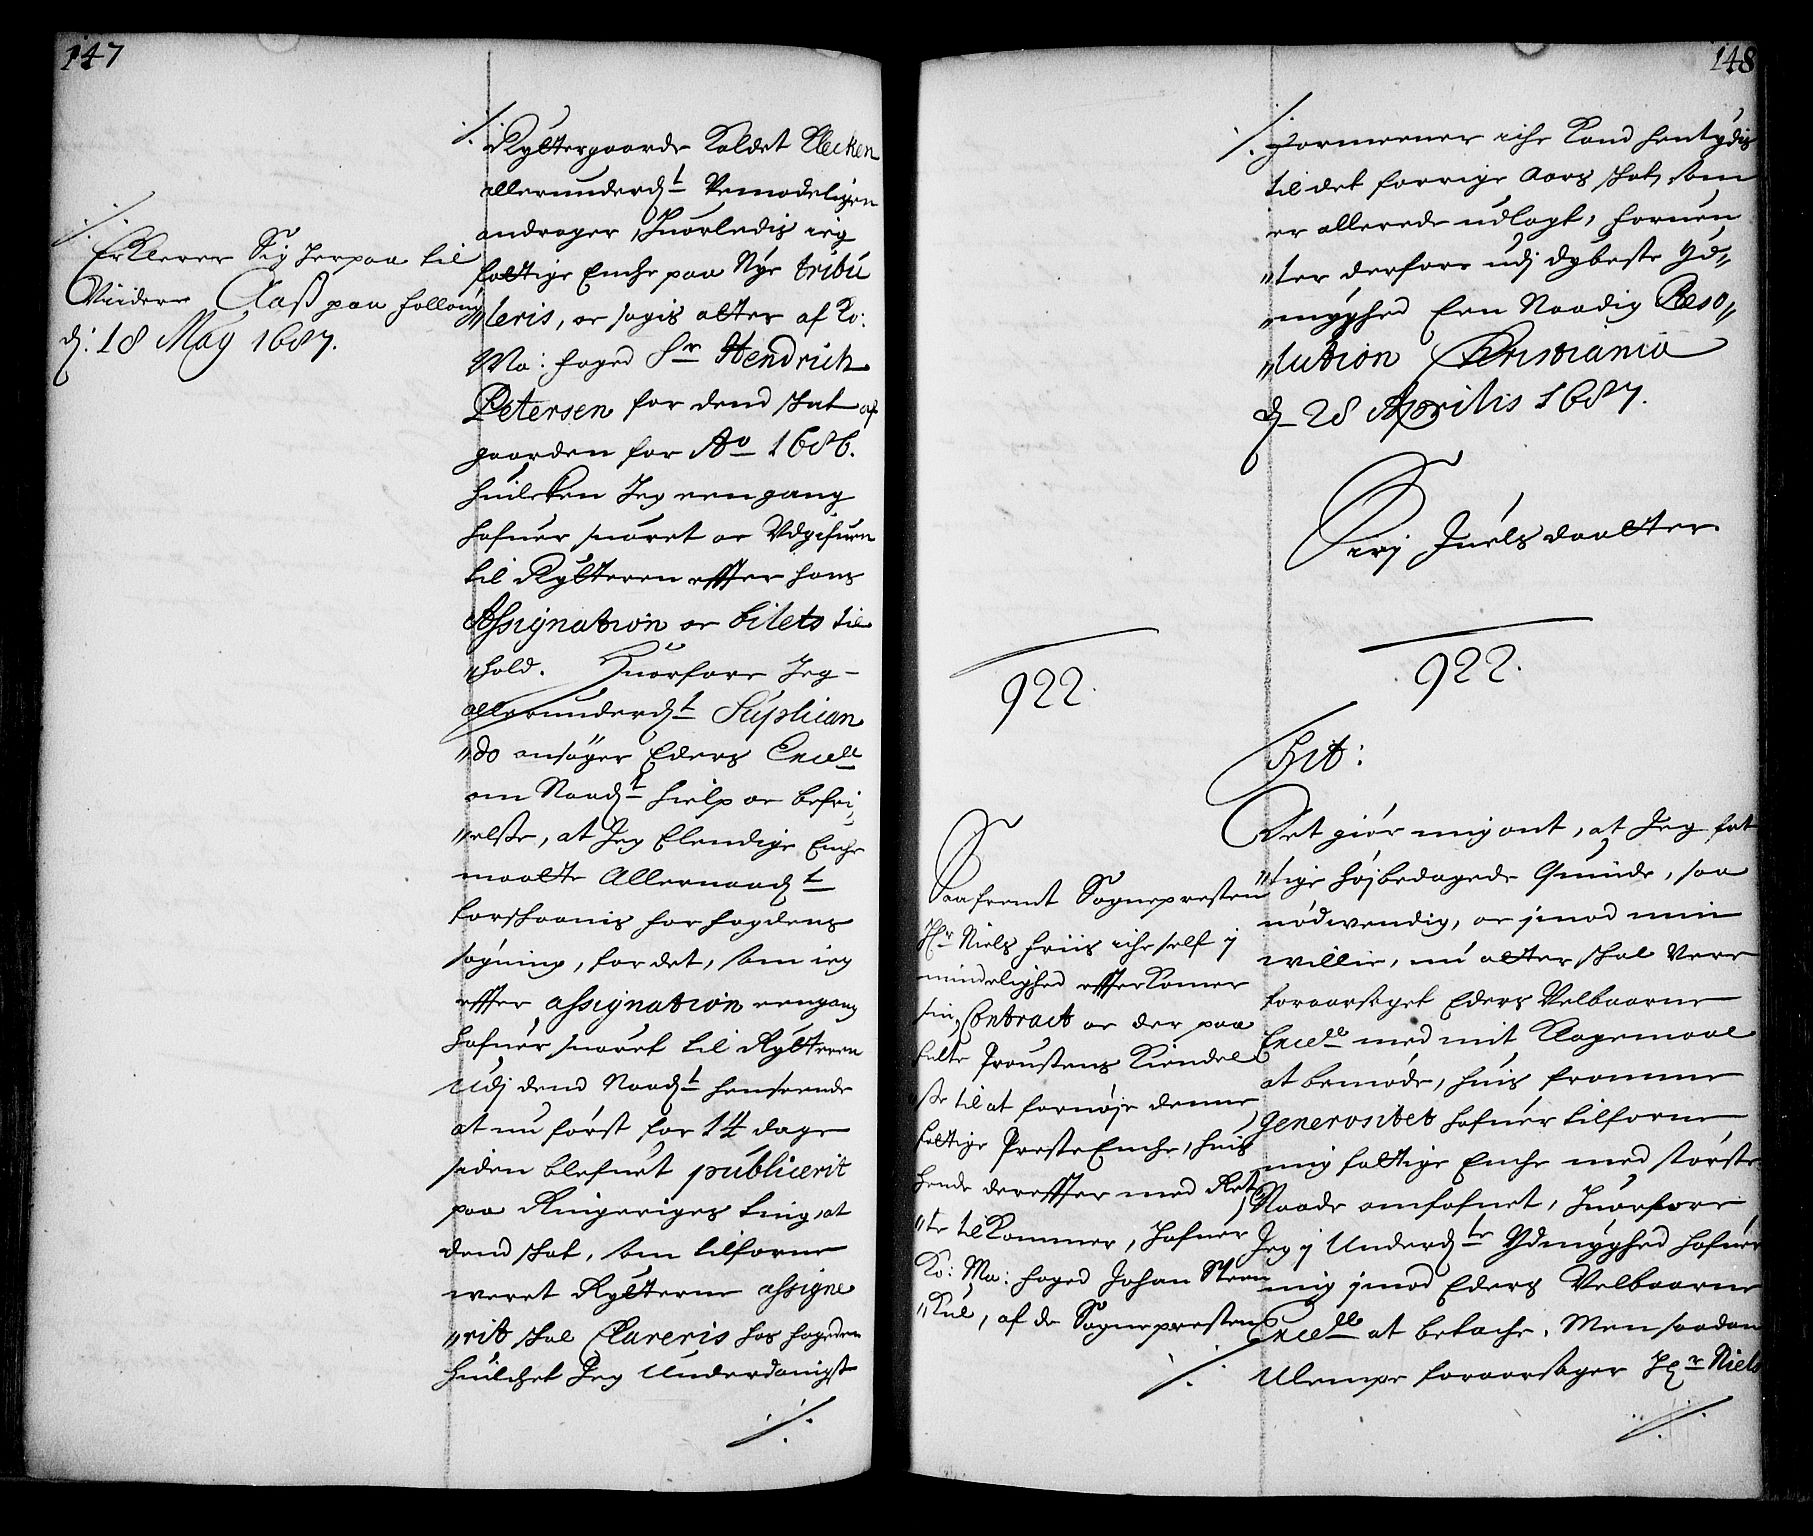 147
./.
Erklerer Sig herpaa til
Viidere Aaß paa følloug
d: 18 May 1687.
./.
Rytttergaarde Kaldet Klecken
allerunderdt Vemodeligen
andrager, huorledis ieg
fattige Enche paa Nye tribu
"leris, oc søgis atter af Ko:
Ma: foged Sr Hendrich
Petersen for dend skat af
gaarden for Ao 1686.
huilcken Jeg eengang
hafuer suaret oc Udgifuen
til Rytteren effter hans
Assignation oc bilets til
"hold. Huorfore Jeg
allerunderdt Suplican
"do ansøger Eders Excell
om Naadt hielp oc befri
"elße, at Jeg Elendige Enche
maatte Allernaadt
forskaanis for fogdens
søgning, for det, som ieg
effter assignation eengang
hafuer suaret til Rytteren
Udj dend Naadt henseende
at nu først for 14 dage
siden blefuet publicerit
paa Ringeriges ting, at
dend skat, som tilforne
weret Rytterne assigne
"rit skal Clareris hos fogeden
huilchet Jeg Underdanigst
./.
148
./.
formeener iche Kand hentydis
til det forrige Aars skat, som
er allerede udlagt, foruen
"ter derfore udj dybeste Yd"
"myghed Een Naadig Reso"
"lution Christiania
d 28 Aprilis 1687.
Sirj Juels daatter
922.
Saafremt Sognepresten
Hr Niels Friis iche self j
mindelighed effterkomer
sin Contract oc der paa
fulte Proustens Kiendel
"ße til at fornøje denne
fattige Preste Enche, huis
hende dereffter med Ret
"te tilkommer, hafuer
Ko: Ma: foged Johan Steen
"Kul, af de Sognepresten
./.
922.
Hit:
Det giør mig ont, at Jeg fat
"tige højbedagede Quinde, saa
nødwendig, oc jmod min
willie, nu atter skal Vere
foraarsaget Eders Velbaarne
Excell med mit Klagemaal
at bemøde, huis fromme
generositet hafuer tilforne
mig fattige Enche med største
Naade omfafnet, huorfore
Jeg j Underdte Ydmyghed hafuer
mig jmod Eders Velbaarne
Excell at betache. Men saadan
Ulempe foraarsager Hr Niels
./.